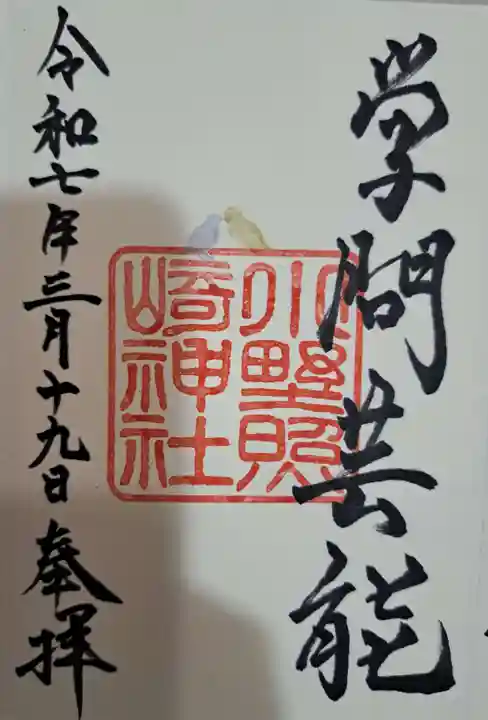 学問芸能
小野照
崎神社
令和七年三月十九日奉拝